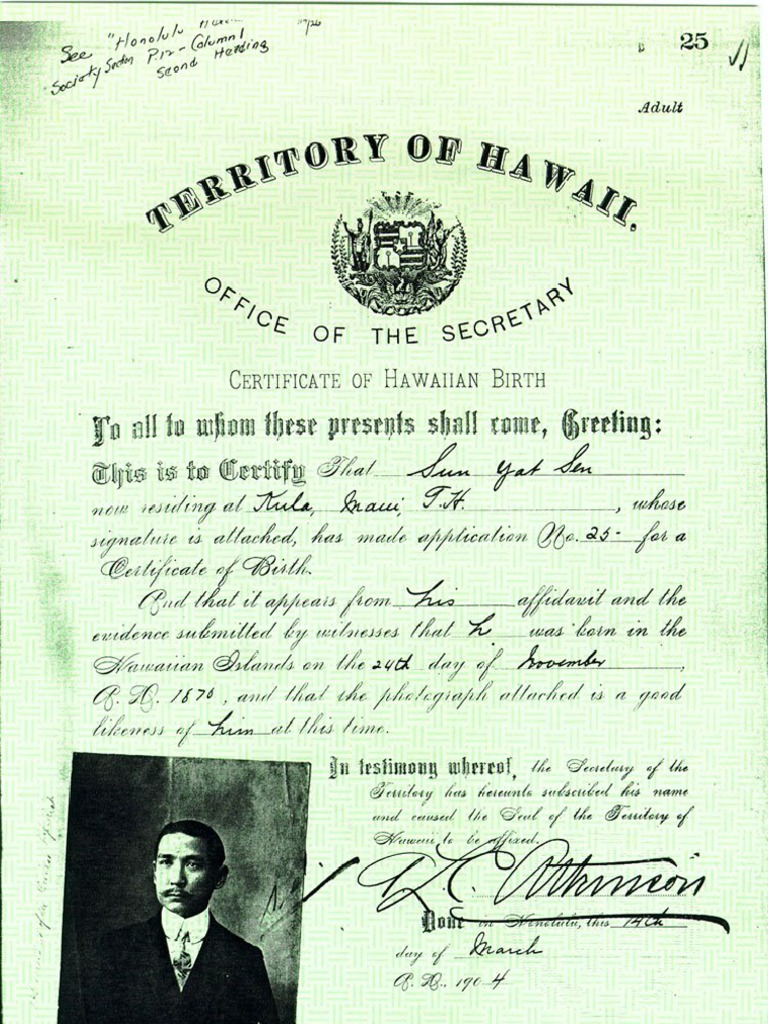 See "Honolulu
Society Section P.12 - Column 1
Second Heading
25
Adult
TERRITORY OF HAWAII.
OFFICE OF THE SECRETARY
CERTIFICATE OF HAWAIIAN BIRTH
To all to whom these presents shall come, Greeting:
This is to Certify That Sun Yat Sen
now residing at Kula, Maui, T.H. , whose
signature is attached, has made application No. 25- for a
Certificate of Birth.
And that it appears from his affidavit and the
evidence submitted by witnesses that he was born in the
Hawaiian Islands on the 24th day of November ,
A.D. 1870, and that the photograph attached is a good
likeness of him at this time.
In testimony whereof, the Secretary of the
Territory has hereunto subscribed his name
and caused the Seal of the Territory of
Hawaii to be affixed.
A L C Atkinson
Done in Honolulu, this 14th
day of March
A.D. 1904